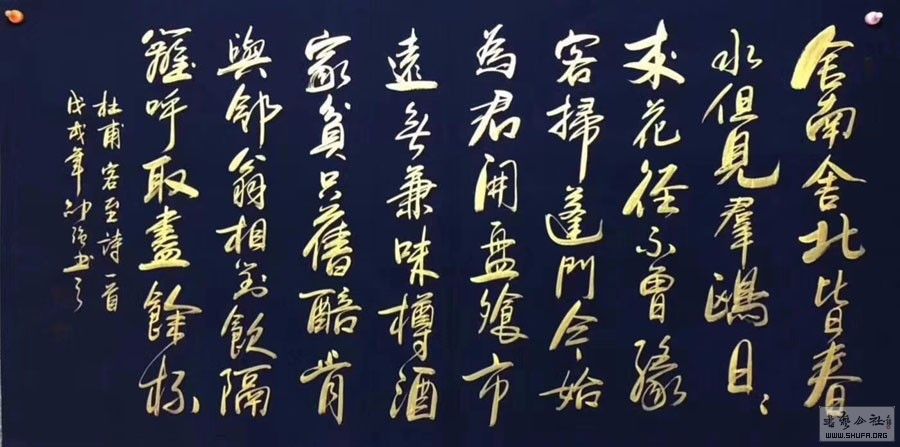 舍南舍北皆春
水但見羣鷗日〻
来花徑不曾緣
客掃蓬門今始
為君開盤飧市
遠無兼味樽酒
家貧只舊醅肯
與鄰翁相對飲隔
籬呼取盡餘杯
杜甫客至詩一首
戊戌年 書
WWW.SHUFA.ORG